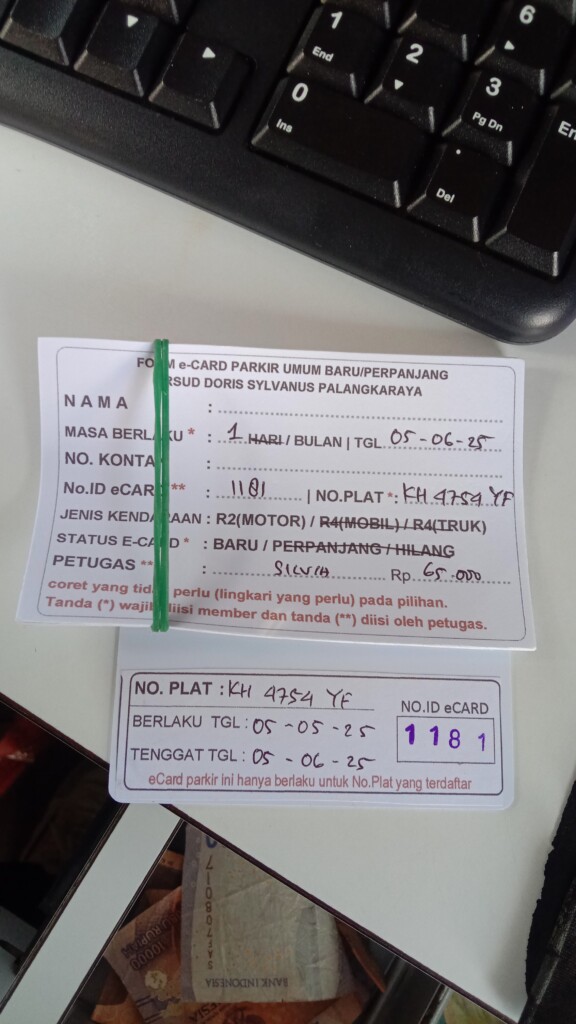 1
End
2
3
Pg Dn
6
0
Ins
.
Del
FO M e-CARD PARKIR UMUM BARU/PERPANJANG
RSUD DORIS SYLVANUS PALANGKARAYA
NAMA :
MASA BERLAKU * : 1 HARI / BULAN | TGL. 05-06-25
NO. KONTA :
No.ID eCARD ** : 1181 | NO.PLAT *: KH 4754 YF
JENIS KENDARAAN : R2(MOTOR) / R4(MOBIL) / R4(TRUK)
STATUS E-CARD * : BARU / PERPANJANG / HILANG
PETUGAS ** : SILVIA Rp. 65.000
coret yang tidak perlu (lingkari yang perlu) pada pilihan.
Tanda (*) wajib diisi member dan tanda (**) diisi oleh petugas.
NO. PLAT : KH 4754 YF
NO.ID eCARD
BERLAKU TGL : 05-05-25
1181
TENGGAT TGL : 05-06-25
eCard parkir ini hanya berlaku untuk No.Plat yang terdaftar
BANK INDONESIA
10000